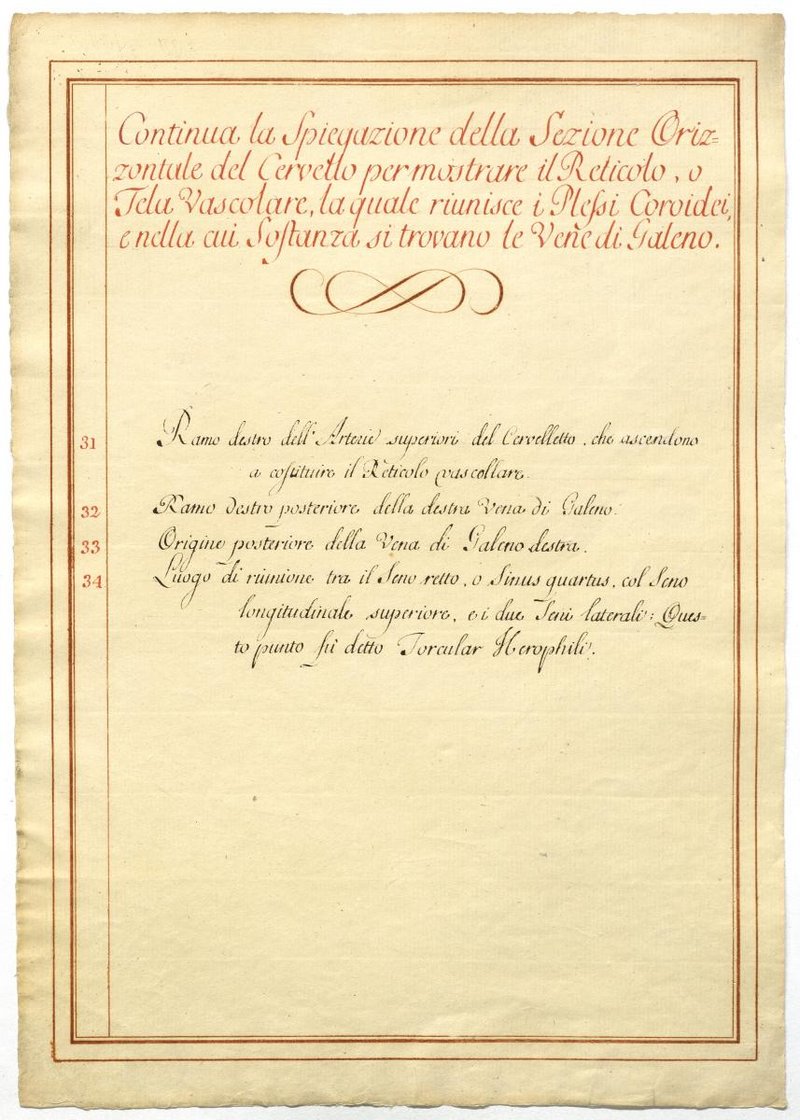 Continua la Spiegazione della Sezione Oriz=
zontale del Cervello per mostrare il Reticolo, o
Tela Vascolare, la quale riunisce i Plessi Coroidei,
e nella cui Sostanza si trovano le Vene di Galeno.
31 Ramo destro dell'Arterie superiori del Cervelletto, che ascendono
a costituire il Reticolo vascollare.
32 Ramo destro posteriore della destra Vena di Galeno.
33 Origine posteriore della Vena di Galeno destra.
34 Luogo di riunione tra il Seno retto, o Sinus quartus, col Seno
longitudinale superiore, e i due Seni laterali: Ques=
to punto fù detto Torcular Herophili.